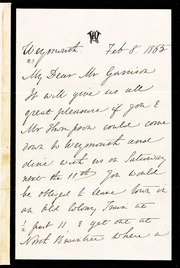 Weymouth Feb 8. 1865
My Dear Mr Garrison
It will give us all
great pleasure if you &
Mr Thompson could come
down to Weymouth and
dine with us on Saturday
next the 11th. You would
be obliged to leave town in
an Old Colony Train at
½ past 11, & get out at
North Braintree where a